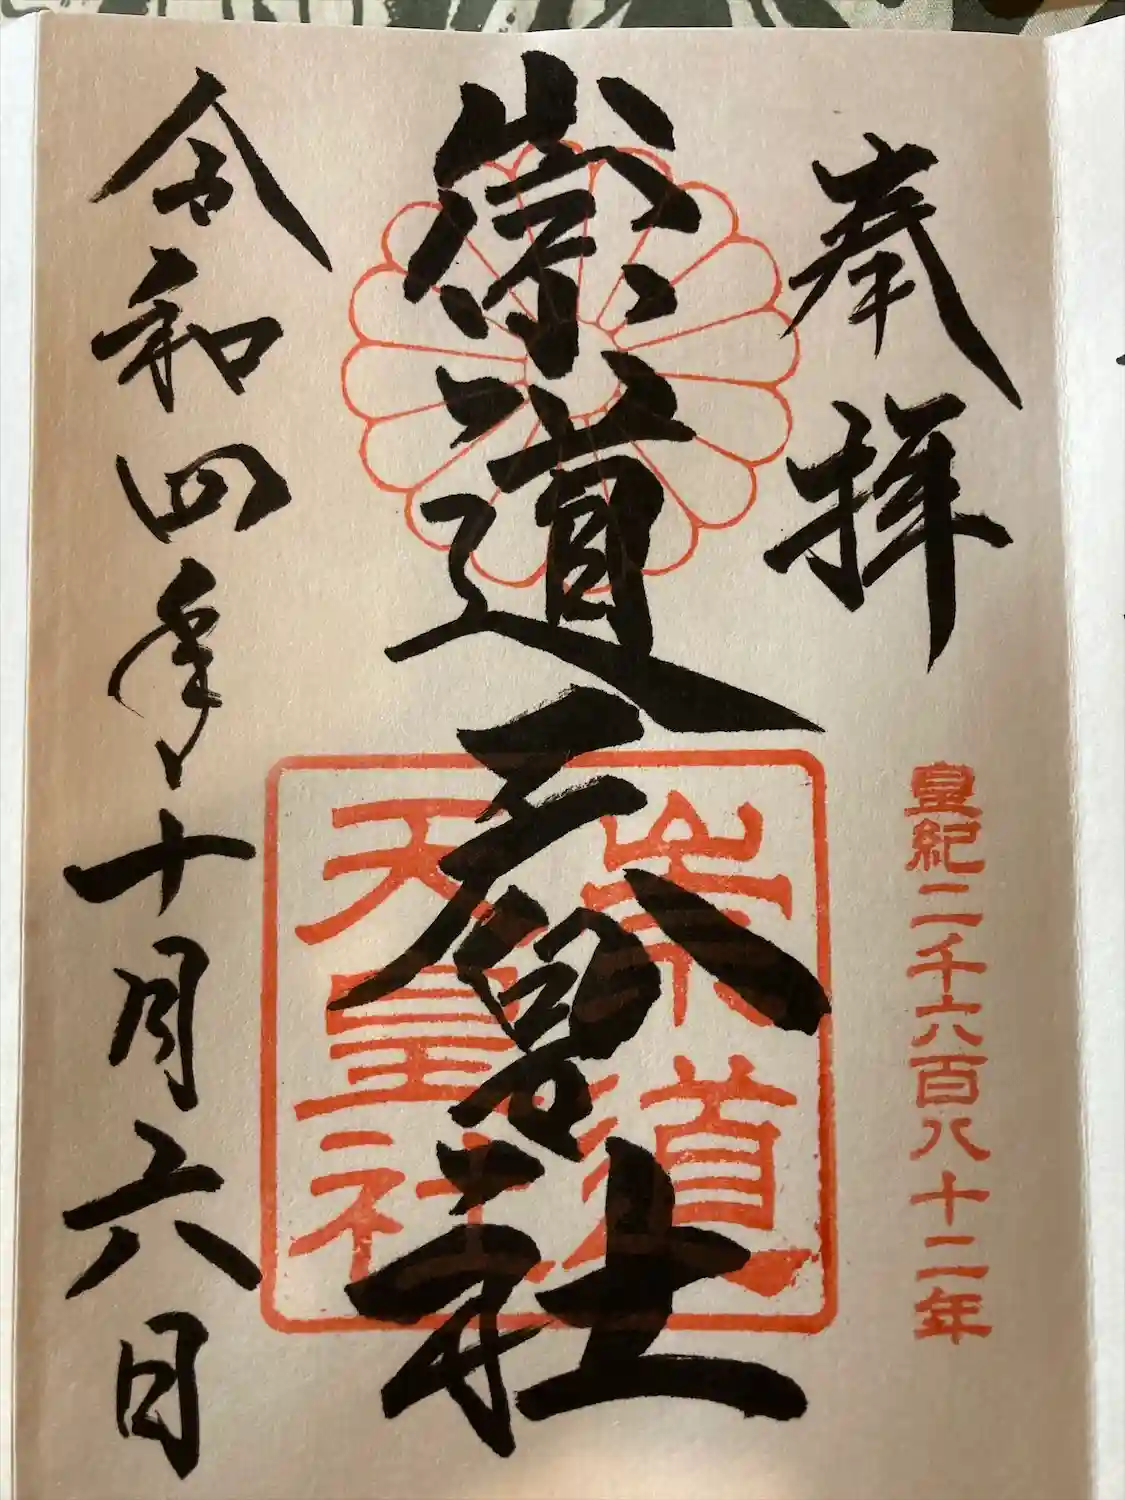 奉拝
皇紀二千六百八十二年
崇道天皇社
崇道
天皇社
令和四年十月六日